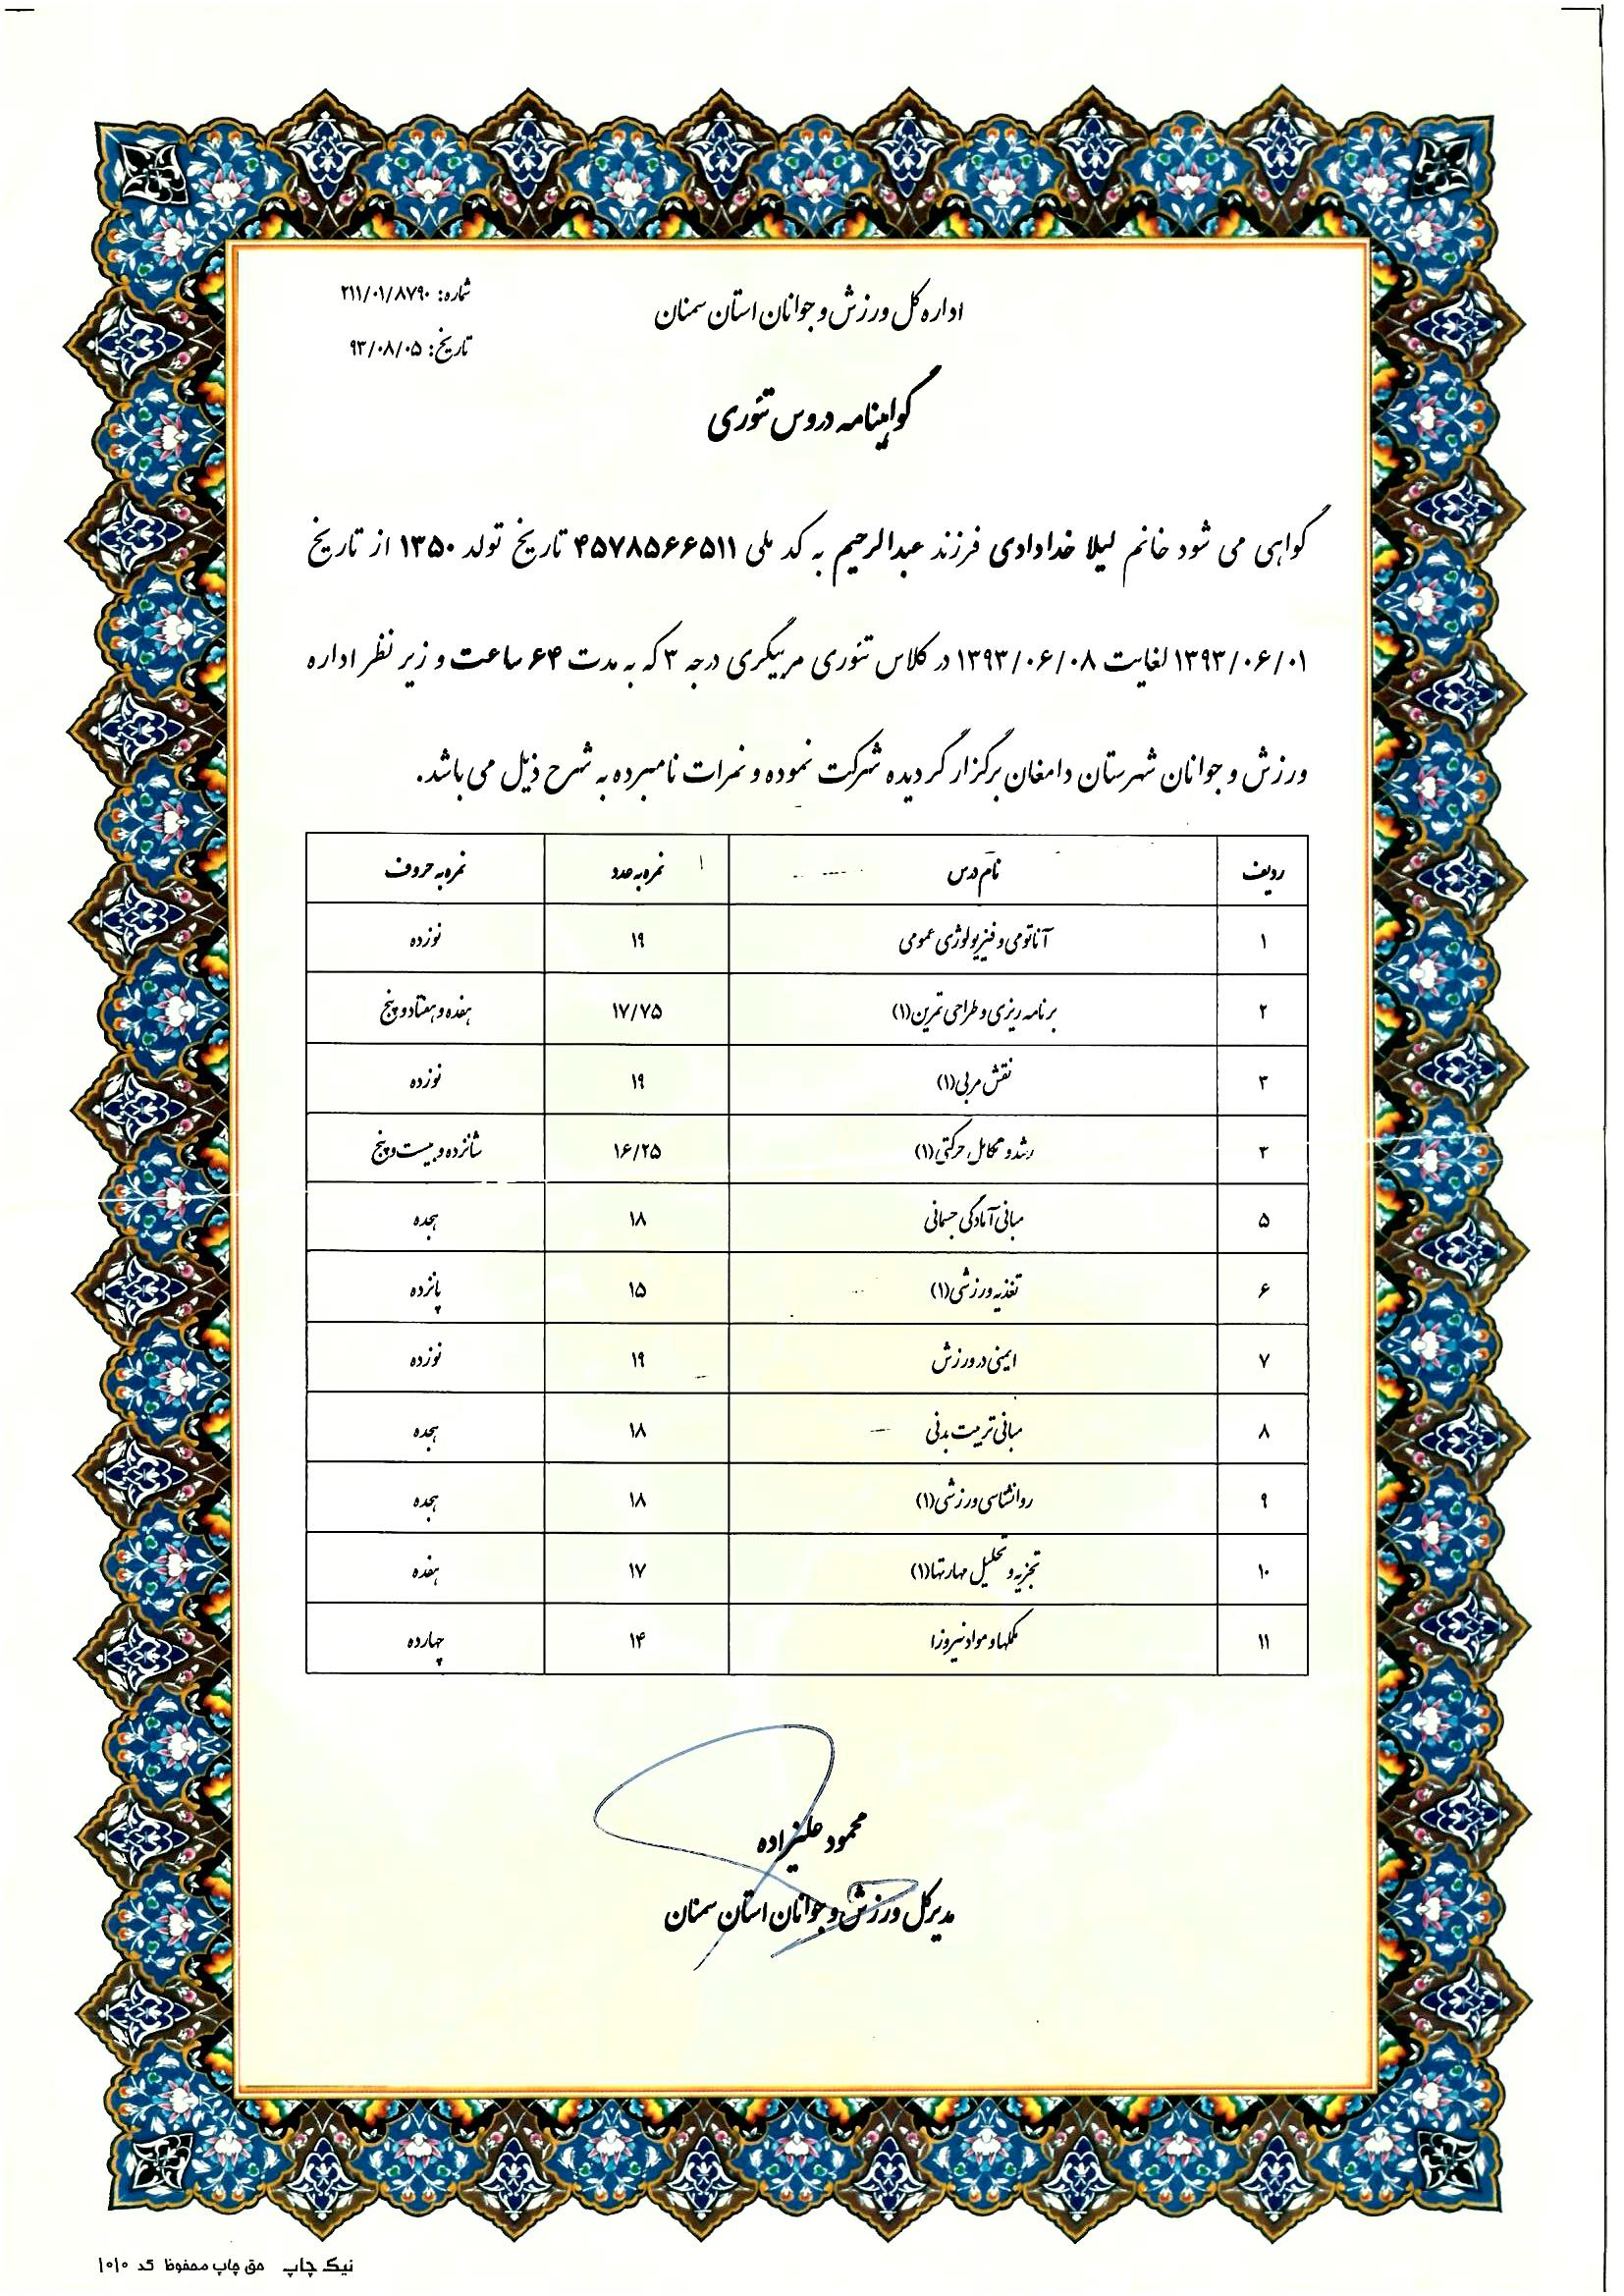 اداره کل ورزش و جوانان استان سمنان
شماره: ۲۱۱/۰۱/۸۷۹۰
تاریخ: ۹۳/۰۸/۰۵
گواهینامه دروس تئوری
گواهی می شود خانم لیلا خدادادی فرزند عبدالرحیم به کد ملی ۴۵۷۸۵۶۶۵۱۱ تاریخ تولد ۱۳۵۰ از تاریخ
۱۳۹۳/۰۶/۰۱ لغایت ۱۳۹۳/۰۶/۰۸ در کلاس تئوری مربیگری درجه ۳ که به مدت ۶۴ ساعت و زیر نظر اداره
ورزش و جوانان شهرستان دامغان برگزار گردیده شرکت نموده و نمرات نامبرده به شرح ذیل می باشد.
ردیف نام درس نمره به عدد نمره به حروف
۱ آناتومی و فیزیولوژی عمومی ۱۹ نوزده
۲ برنامه ریزی و طراحی تمرین(۱) ۱۷/۷۵ هفده و هفتاد و پنج
۳ نقش مربی(۱) ۱۹ نوزده
۴ رشد و تکامل حرکتی(۱) ۱۶/۲۵ شانزده و بیست و پنج
۵ مبانی آمادگی جسمانی ۱۸ هجده
۶ تغذیه ورزشی(۱) ۱۵ پانزده
۷ ایمنی در ورزش ۱۹ نوزده
۸ مبانی تربیت بدنی ۱۸ هجده
۹ روانشناسی ورزشی(۱) ۱۸ هجده
۱۰ تجزیه و تحلیل مهارتها(۱) ۱۷ هفده
۱۱ مکملها و مواد نیروزا ۱۴ چهارده
محمود علیزاده
مدیرکل ورزش و جوانان استان سمنان
نیک چاپ حق چاپ محفوظ کد ۱۰۱۰